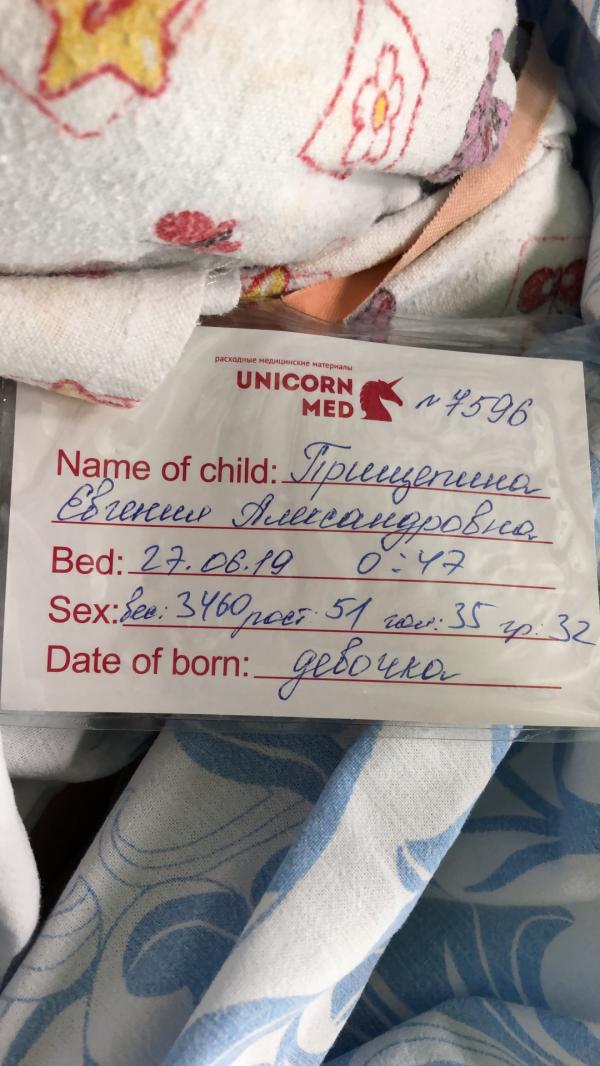 расходные медицинские материалы
UNICORN
MED № 7596
Name of child: Прищепина
Евгения Александровна
Bed: 27.06.19 0:47
Sex: вес: 3460 рост: 51 гол: 35 гр: 32
Date of born: девочка